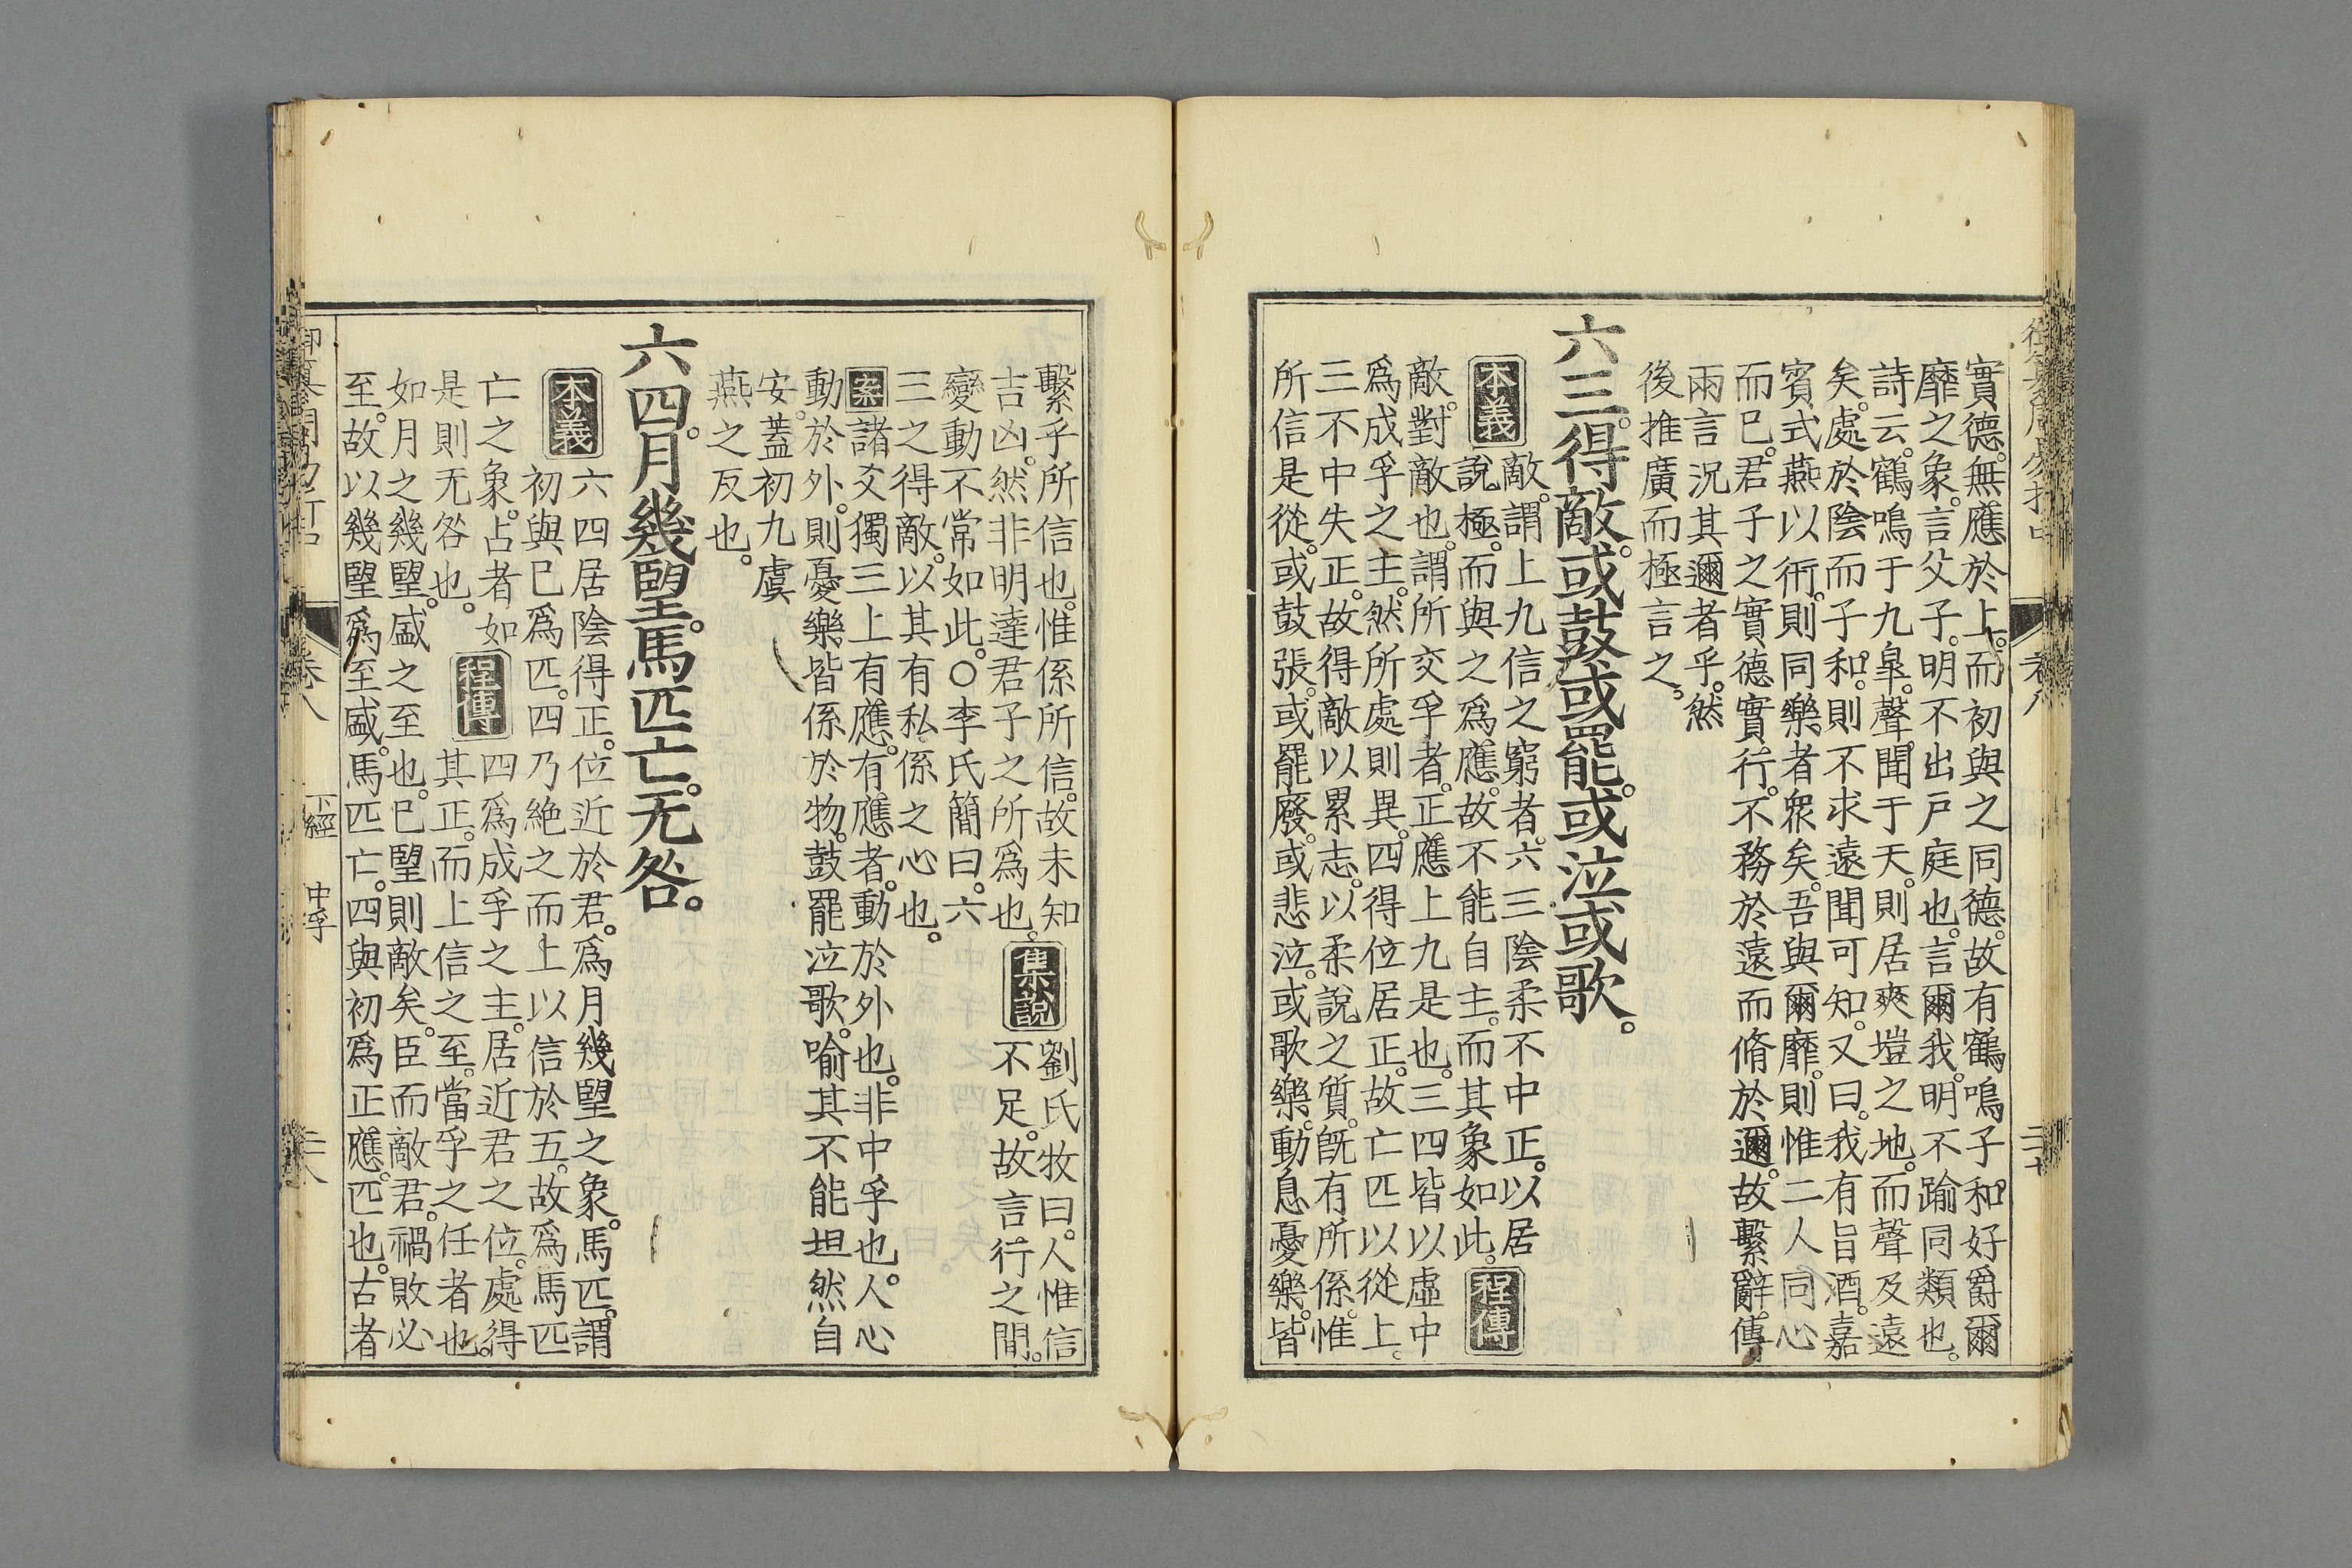 實德。無應於上。而初與之同德。故有鶴鳴子和。好爵爾
靡之象。言父子。明不出戸庭也。言爾我。明不踰同類也。
詩云。鶴鳴于九臯。聲聞于天。則居爽塏之地。而聲及遠
矣。處於陰而子和。則不求遠聞可知。又曰。我有旨酒。嘉
賓式燕以衎。則同樂者衆矣。吾與爾靡。則惟二人同心
而已。君子之實德實行。不務於遠而脩於邇。故繫辭。傳
兩言況其邇者乎。然
後推廣而極言之。
六三。得敵。或鼓或罷。或泣或歌。
本義
敵。謂上九信之窮者。六三陰柔不中正。以居
說極。而與之爲應。故不能自主。而其象如此。
程傳
敵。對敵也。謂所交孚者。正應上九是也。三四皆以虛中
爲成孚之主。然所處則異。四得位居正。故亡匹以從上。
三不中失正。故得敵以累志。以柔說之質。旣有所係。惟
所信是從。或鼓張。或罷廢。或悲泣。或歌樂。動息憂樂。皆
卷八
繫乎所信也。惟係所信。故未知
吉凶。然非明達君子之所爲也。
集說
劉氏牧曰。人惟信
不足。故言行之間。
變動不常如此。○李氏簡曰。六
三之得敵。以其有私係之心也。
案諸爻獨三上有應。有應者。動於外也。非中孚也。人心
動於外。則憂樂皆係於物。鼓罷泣歌。喻其不能坦然自
安。蓋初九虞
燕之反也。
六四。月幾望。馬匹亡。无咎。
本義
六四居陰得正。位近於君。爲月幾望之象。馬匹。謂
初與已爲匹。四乃絶之而上以信於五。故爲馬匹
亡之象。占者如
是則无咎也。
程傳
四爲成孚之主。居近君之位。處得
其正。而上信之至。當孚之任者也。
如月之幾望。盛之至也。已望則敵矣。臣而敵君。禍敗必
至。故以幾望爲至盛。馬匹亡。四與初爲正應。匹也。古者
卷八
下經
中孚